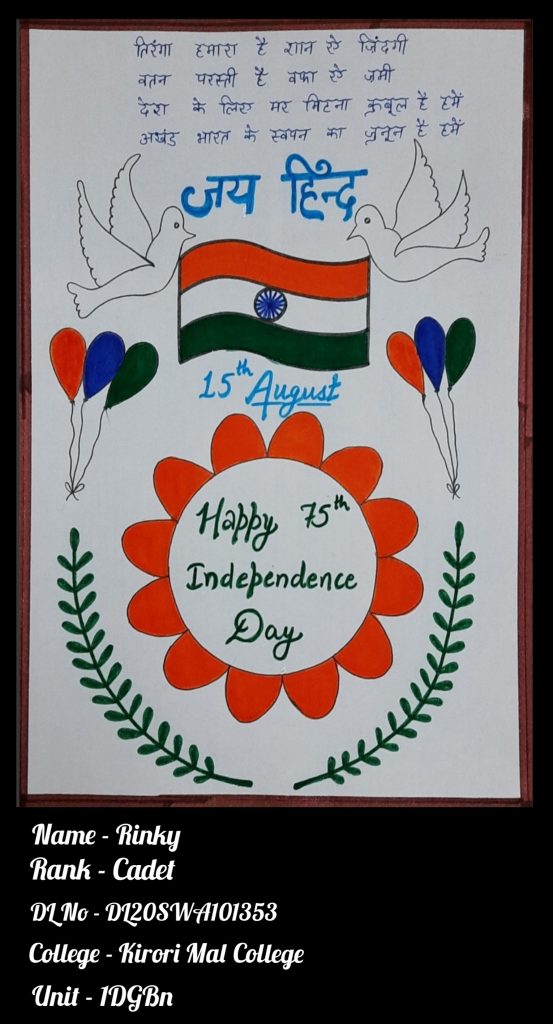 तिरंगा हमारा है शान ऐ ज़िंदगी
वतन परस्ती है वफ़ा ऐ ज़मी
देश के लिए मर मिटना क़ुबूल है हमें
अखंड भारत के स्वपन का जुनून है हमें
जय हिन्द
15th August
Happy 75th
Independence
Day
Name - Rinky
Rank - Cadet
DL No - DL20SWA101353
College - Kirori Mal College
Unit - 1DGBn